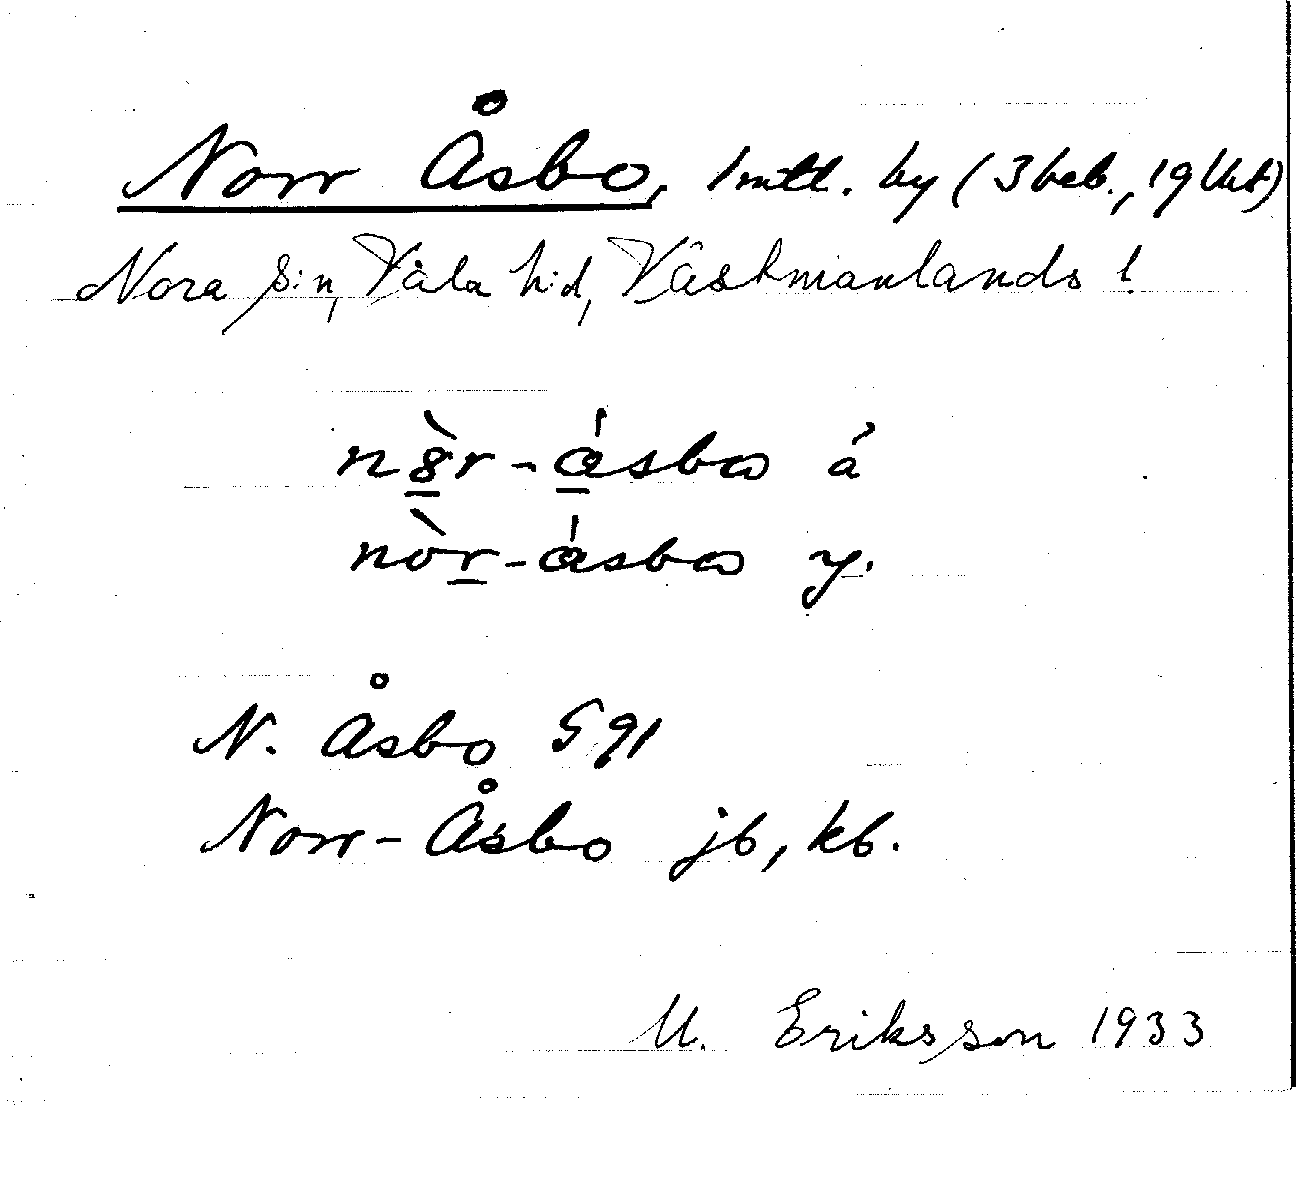 Norr Åsbo, 1 mtl. by (3 beb., 19 lht)
Nora s:n, Våla h:d, Västmanlands l.
nòr-ásbo á
nòr-ásbo y.
N. Åsbo S 91
Norr-Åsbo jb, kb.
M. Eriksson 1933